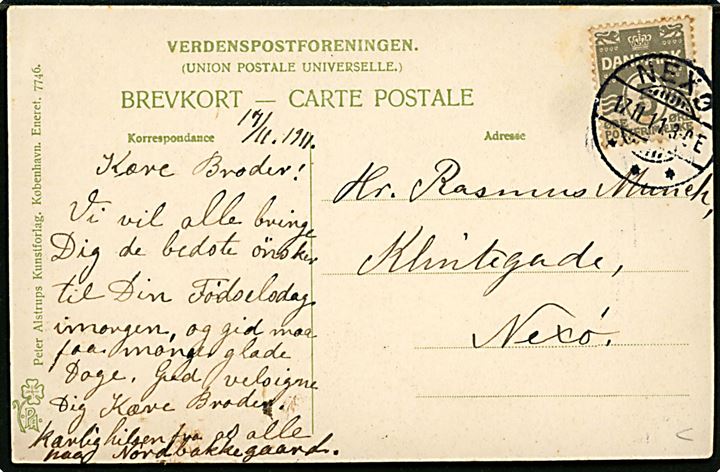 VERDENSPOSTFORENINGEN.
(UNION POSTALE UNIVERSELLE.)
BREVKORT — CARTE POSTALE
Korrespondance
Adresse
17/11. 1911.
Kære Broder!
Vi vil alle bringe
Dig de bedste ønsker
til Din Fødselsdag
imorgen, og gid maa
faa mange glade
Dage. Gud velsigne
Dig Kære Broder.
Kærlig hilsen fra os alle
paa Nordbakkegaard.
Hr. Rasmus Munch,
Klintegade,
Nexö.
DANMARK
NEXØ
17.11.11.3-9E
Peter Alstrups Kunstforlag. København. Eneret. 7746.